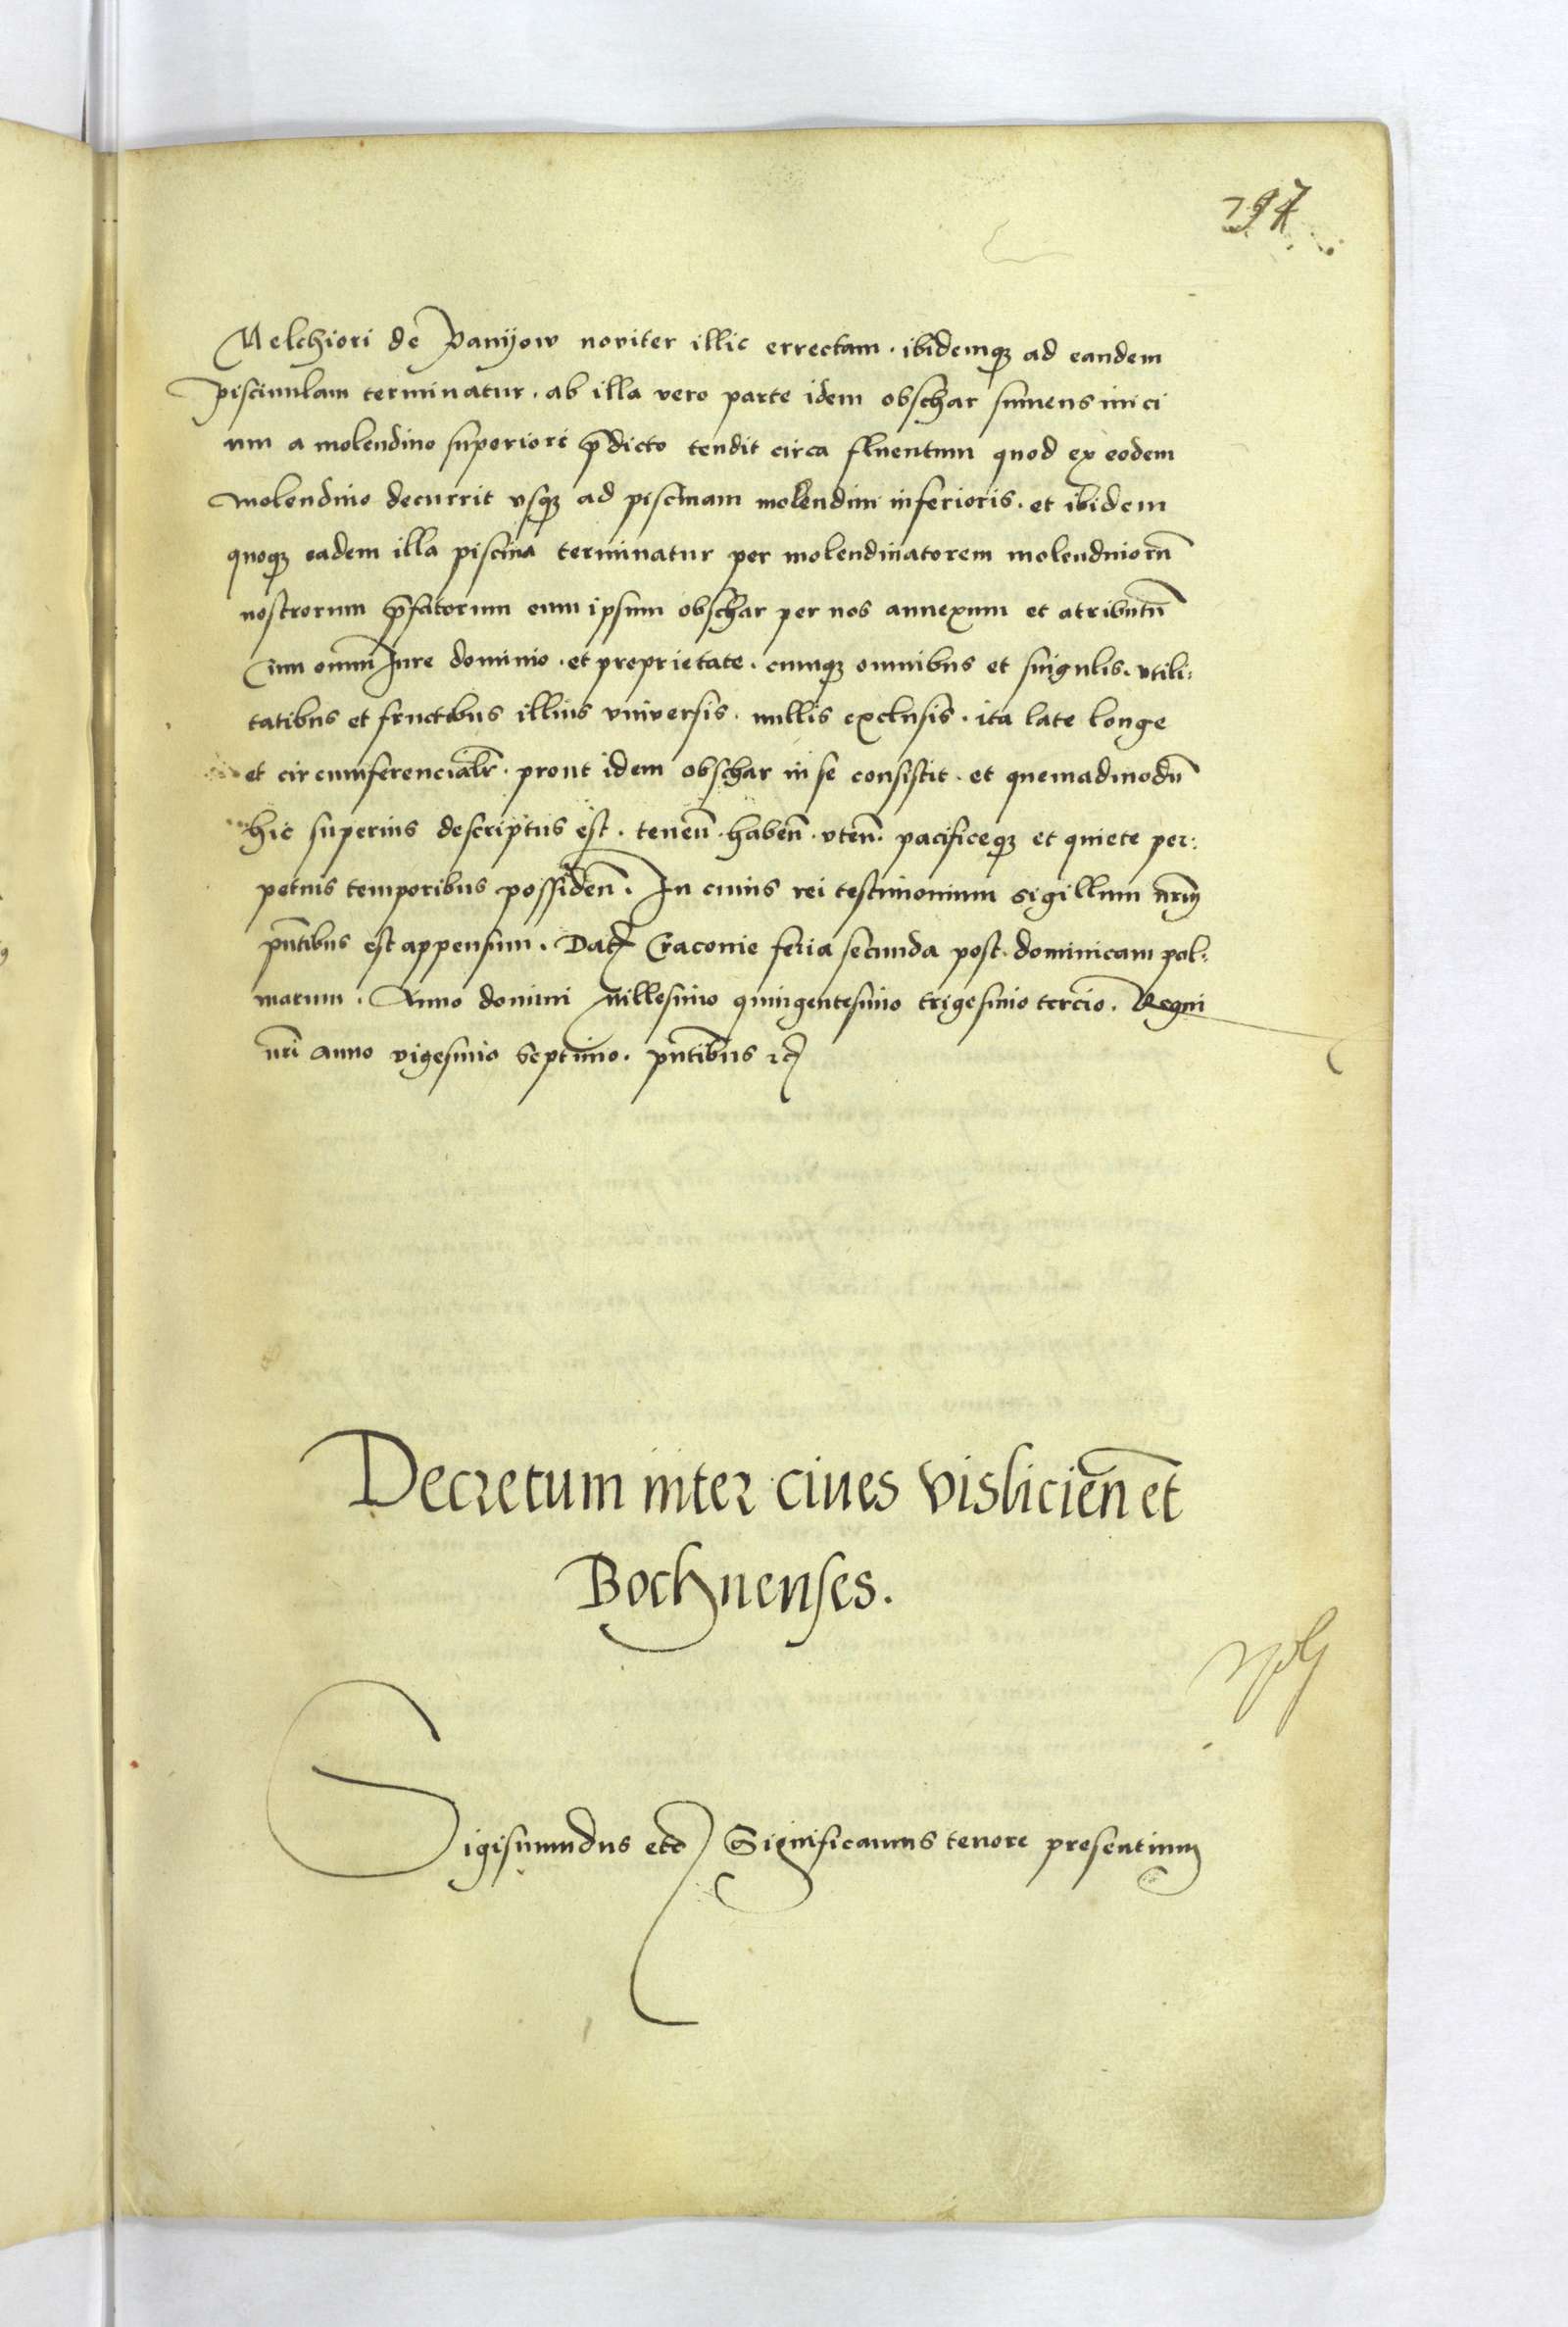 Melchiori de Panyow noviter illic errectam. ibidemqȝ ad eandem
piscinulam terminatur. ab illa vero parte idem obschar sumens inici
um a molendino superiori p̄dicto tendit circa fluentum quod ex eodem
molendino decurrit vsqȝ ad piscinam molendini inferioris. et ibidem
quoqȝ eadem illa piscina terminatur per molendinatorem molendinorū
nostrorum p̄fatorum eum ipsum obschar per nos annexum et atributū
Cum omni Iure dominio. et proprietate. cumqȝ omnibus et singulis. vtili:
tatibus et fructibus illius vniversis. nullis exclusis. ita late longe
et circumferencialr̄. prout idem obschar in se consistit. et quemadmodū
hic superius descriptus est. teneñ. habeñ. vteñ. pacificeqȝ et quiete per:
petuis temporibus possideñ. In cuius rei testimonium sigillum nr̄m
pñtibus est appensum. Datꝫ Craconie feria secunda post. dominicam pal:
marum. Anno domini Millesimo quingentesimo trigesimo tercio. Regni
nr̄i anno vigesimo septimo. pñtibus ꝛcꝫ
Decretum inter ciues visliciēn et
Bochnenses.
Sigismundus etc Significamus tenore presentium